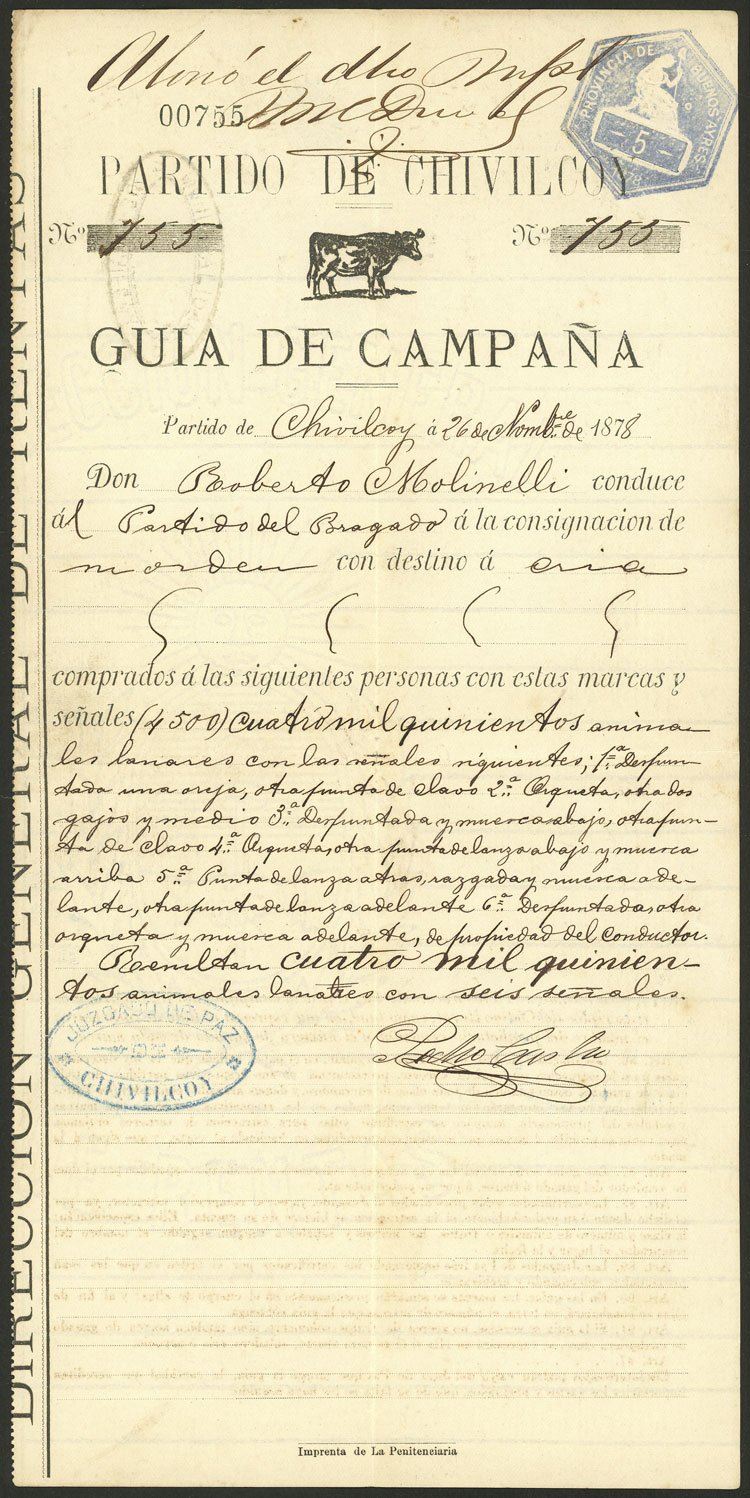 Abonó el dho Impst
00755
PROVINCIA DE BUENOS AYRES
- 5 -
PARTIDO DE CHIVILCOY
Nº 755 Nº 755
GUIA DE CAMPAÑA
Partido de Chivilcoy á 26 de Nombre de 1878
Don Roberto Molinelli conduce
ál Partido del Bragado á la consignacion de
su orden con destino á cria
comprados á las siguientes personas con estas marcas y
señales (4500) cuatro mil quinientos anima
les lanares con las señales siguientes; 1ª Despun
tada una oreja, otra punta de clavo 2ª Orqueta, otra dos
gajos y medio 3ª Despuntada y muesca abajo, otra pun-
ta de clavo 4ª Orqueta, otra punta de lanza abajo y muesca
arriba 5ª Punta de lanza atras, razgada y muesca ade-
lante, otra punta de lanza adelante 6ª Despuntada, otra
orqueta y muesca adelante, de propiedad del conductor.
Resultan cuatro mil quinien-
tos animales lanares con seis señales.
JUZGADO DE PAZ
CHIVILCOY
Pedro Castro
DIRECCION GENERAL DE RENTAS
Imprenta de La Penitenciaria